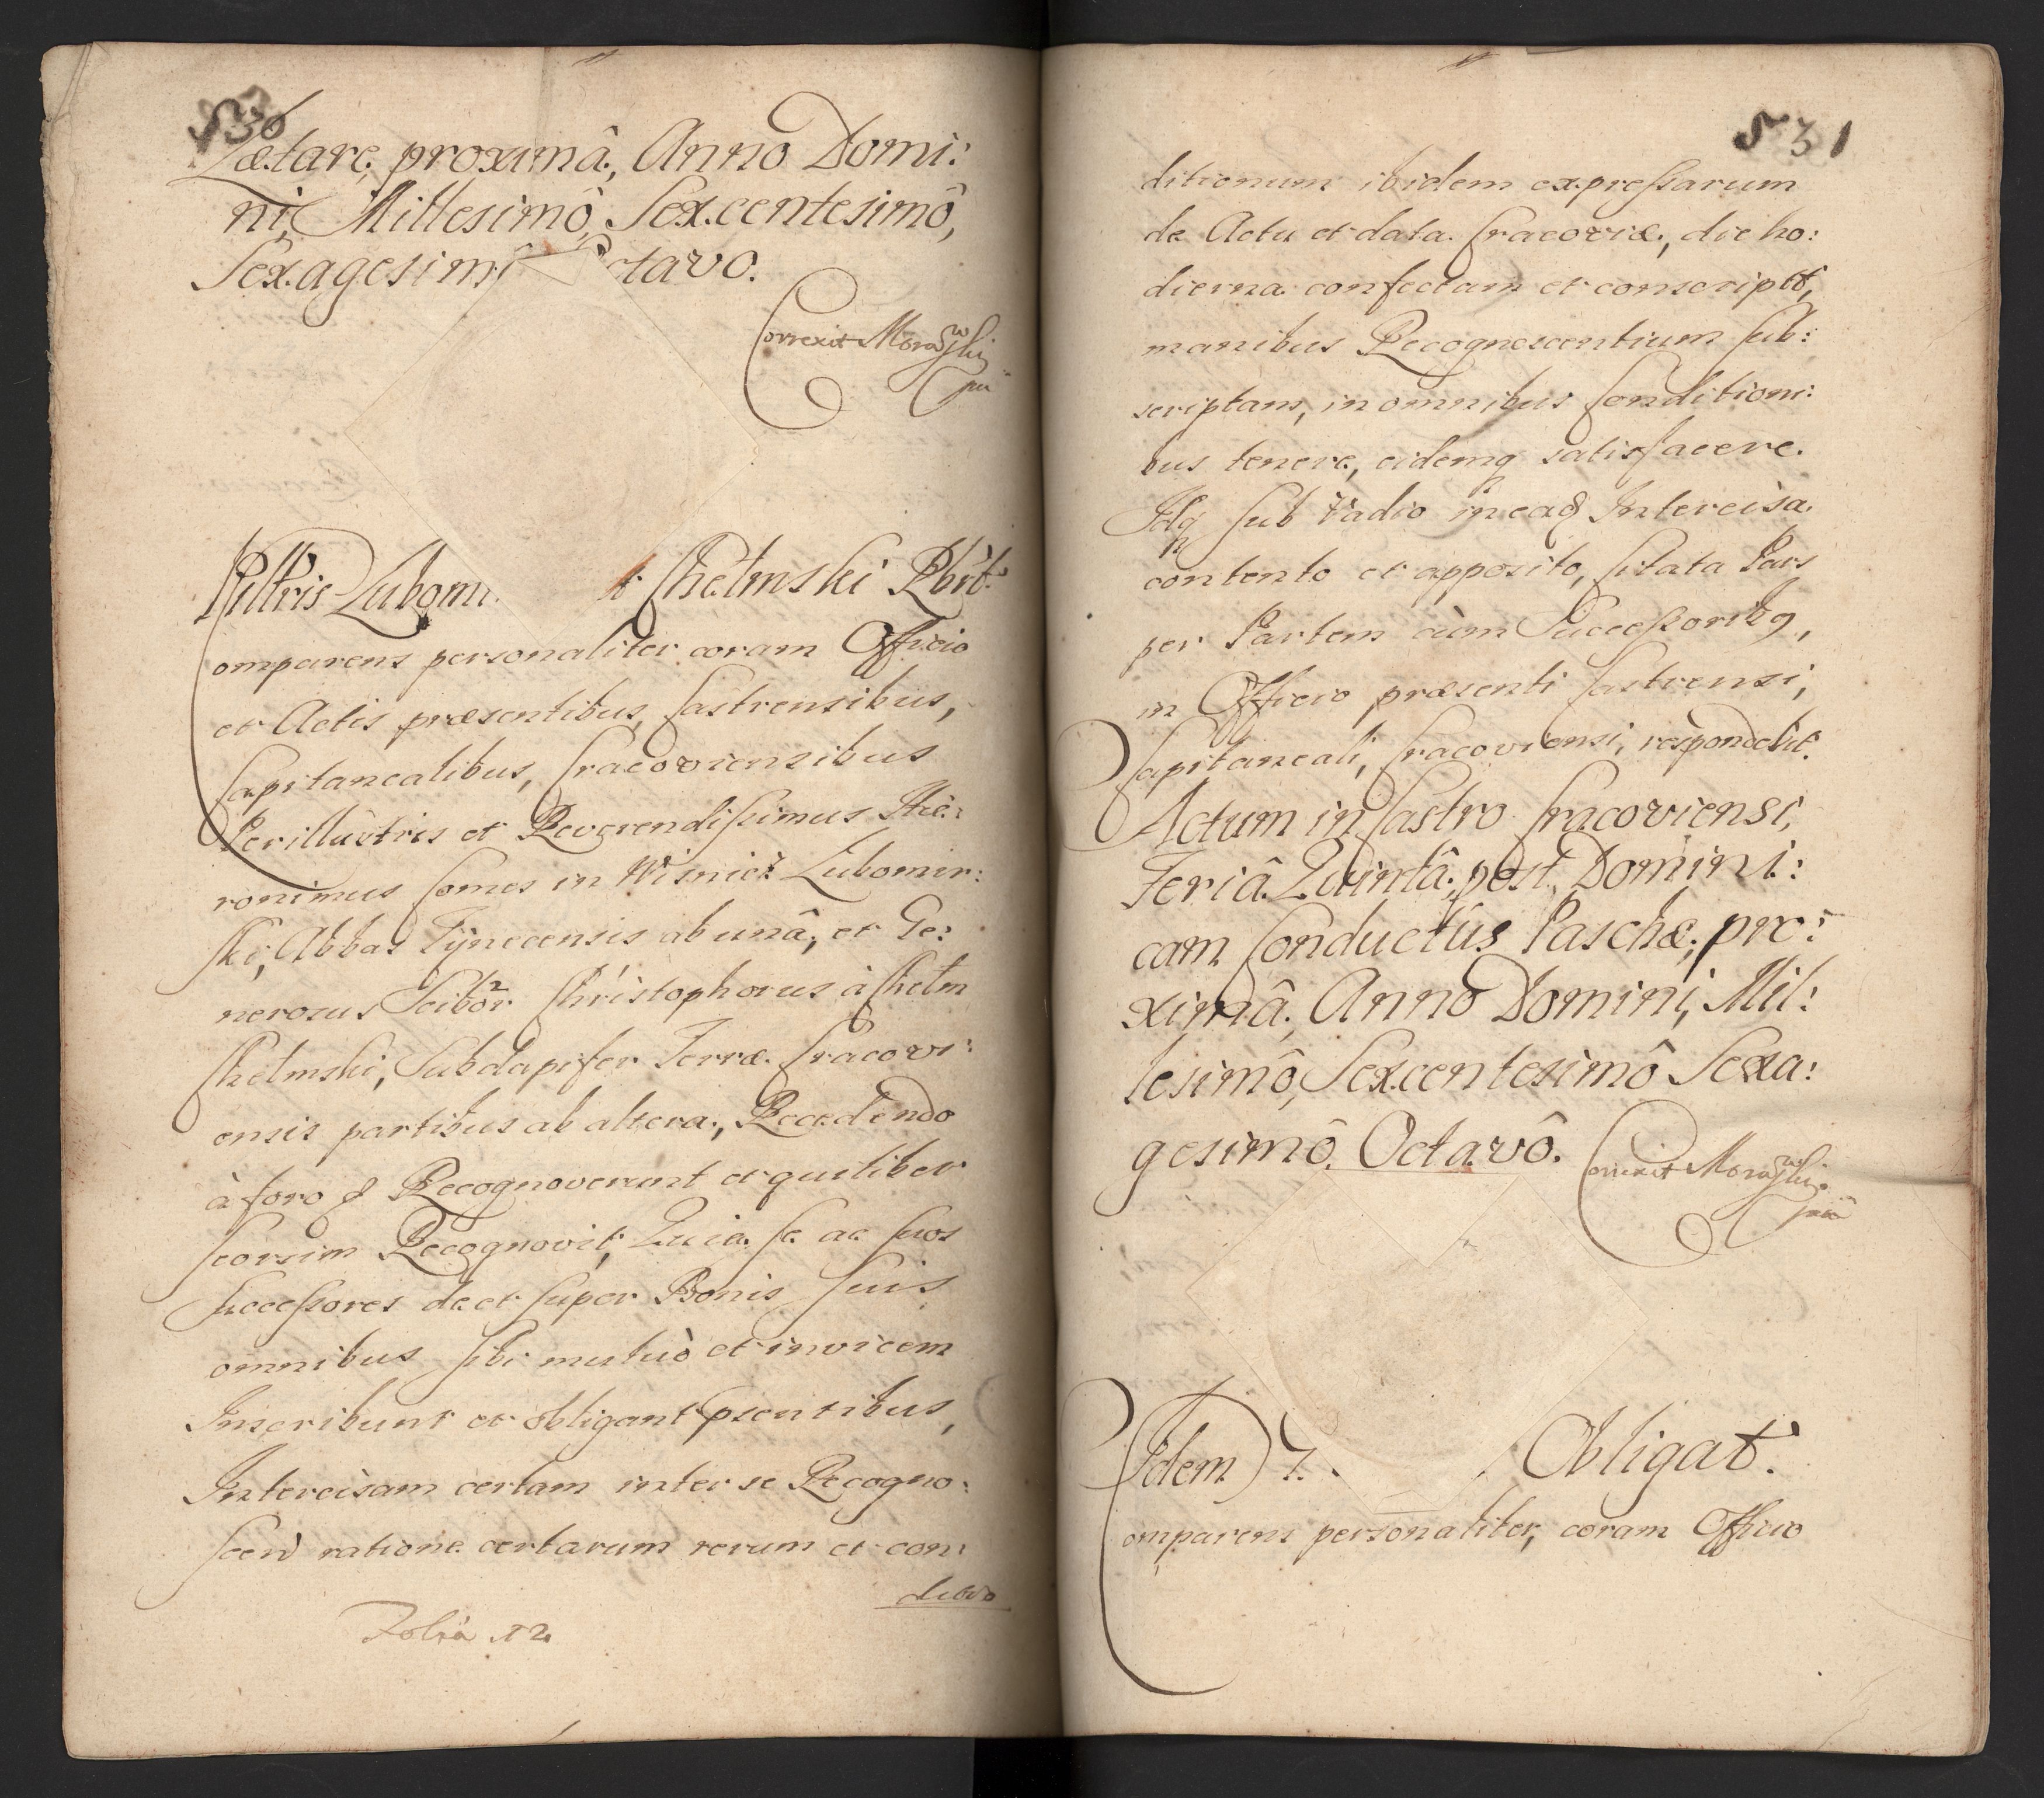 530
Lætare, proximâ, Anno Domi:
ni, Millesimô, Sexcentesimô,
Sexagesim ctavo.
Correxit Morawski
mp
Perillris Lubomi et Chełmski
Comparens personaliter coram Officio
et Actis præsentibus, Castrensibus,
Capitanealibus, Cracoviensibus
Perillustris et Reverendissimus Hie:
ronimus Comes in Wisnicz Lubomir:
ski, Abbas Tÿnecensis ab unâ, et Ge:
nerosus Scibor Christophorus à Chełm
Chełmski, Subdapifer Terræ Cracovi:
ensis partibus ab altera, Recedendo
à foro Recognoverunt et quilibet
seorsim Recognovit, Quia se ac suos
Successores de et super Bonis suis
omnibus sibi mutuò et invicem
Inscribunt et obligant psentibus,
Intercisam certam inter se Recogno:
scen ratione certarum rerum et con:
Folia 12
531
ditionum ibidem expressarum
de Actu et data Cracoviæ, die ho:
dierna confectam et conscript,
manibus Recognoscentium sub:
scriptam, in omnibus Conditioni:
bus tenere, eidemq satisfacere.
Idq sub vadio in ead Intercisa
contento et apposito, citata Pars
per Partem cùm Successorib9,
in Officio præsenti Castrensi,
Capitaneali, Cracoviensi, respondebit.
Actum in Castro Cracoviensi,
Feriâ Quintâ post Domini:
cam Conductûs Paschæ, pro:
ximâ, Anno Domini, Mil:
lesimô, Sexcentesimô Sexa:
gesimô Octavô.
Correxit Morawski
mp
Idem Obligat.
Comparens personaliter, coram Officio